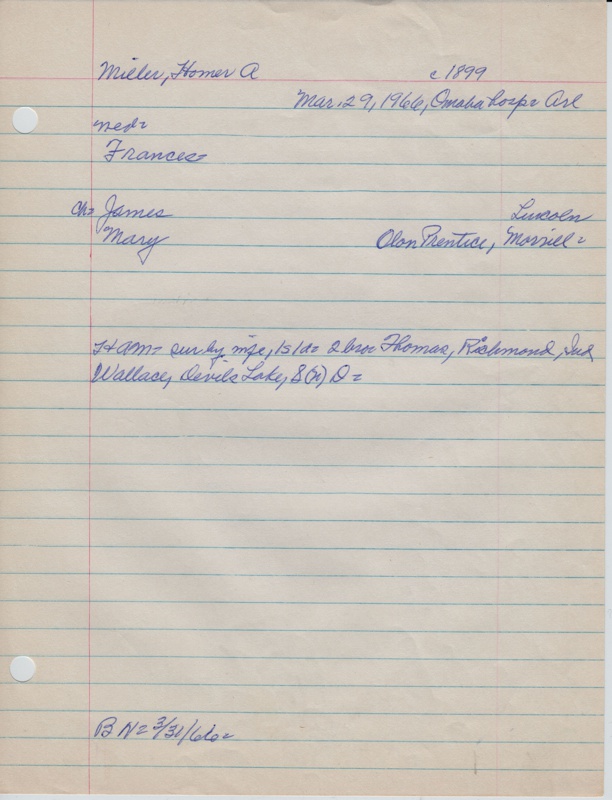 Miller, Homer A c1899
Mar. 29, 1966, Omaha hosp=
med=
Frances=
ch= James Lincoln
Mary Olon Prentice, Morrill=
HAM= sur by wife, 1s 1d= 2 bro= Thomas, Richmond, Ind
Wallace, Devils Lake, D=
BN= 3/31/66=